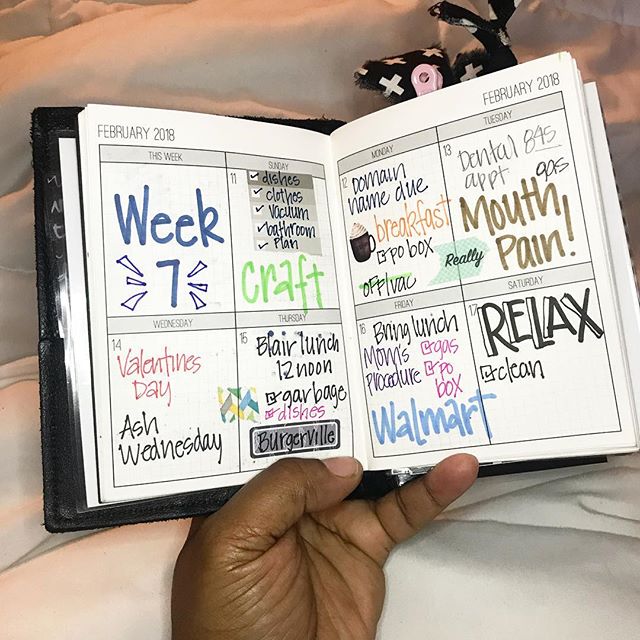 FEBRUARY 2018
THIS WEEK
Week
7
SUNDAY
11
dishes
clothes
Vacuum
bathroom
Plan
Craft
WEDNESDAY
14
Valentines
Day
Ash
Wednesday
THURSDAY
15
Blair lunch
12 noon
garbage
dishes
Burgerville
FEBRUARY 2018
MONDAY
12
Domain
name due
breakfast
po box
off/vac
TUESDAY
13
Dental 845
appt
gas
Mouth
Pain!
Really
FRIDAY
16
Bring lunch
Mom's
Procedure
gas
po
box
Walmart
SATURDAY
17
RELAX
clean